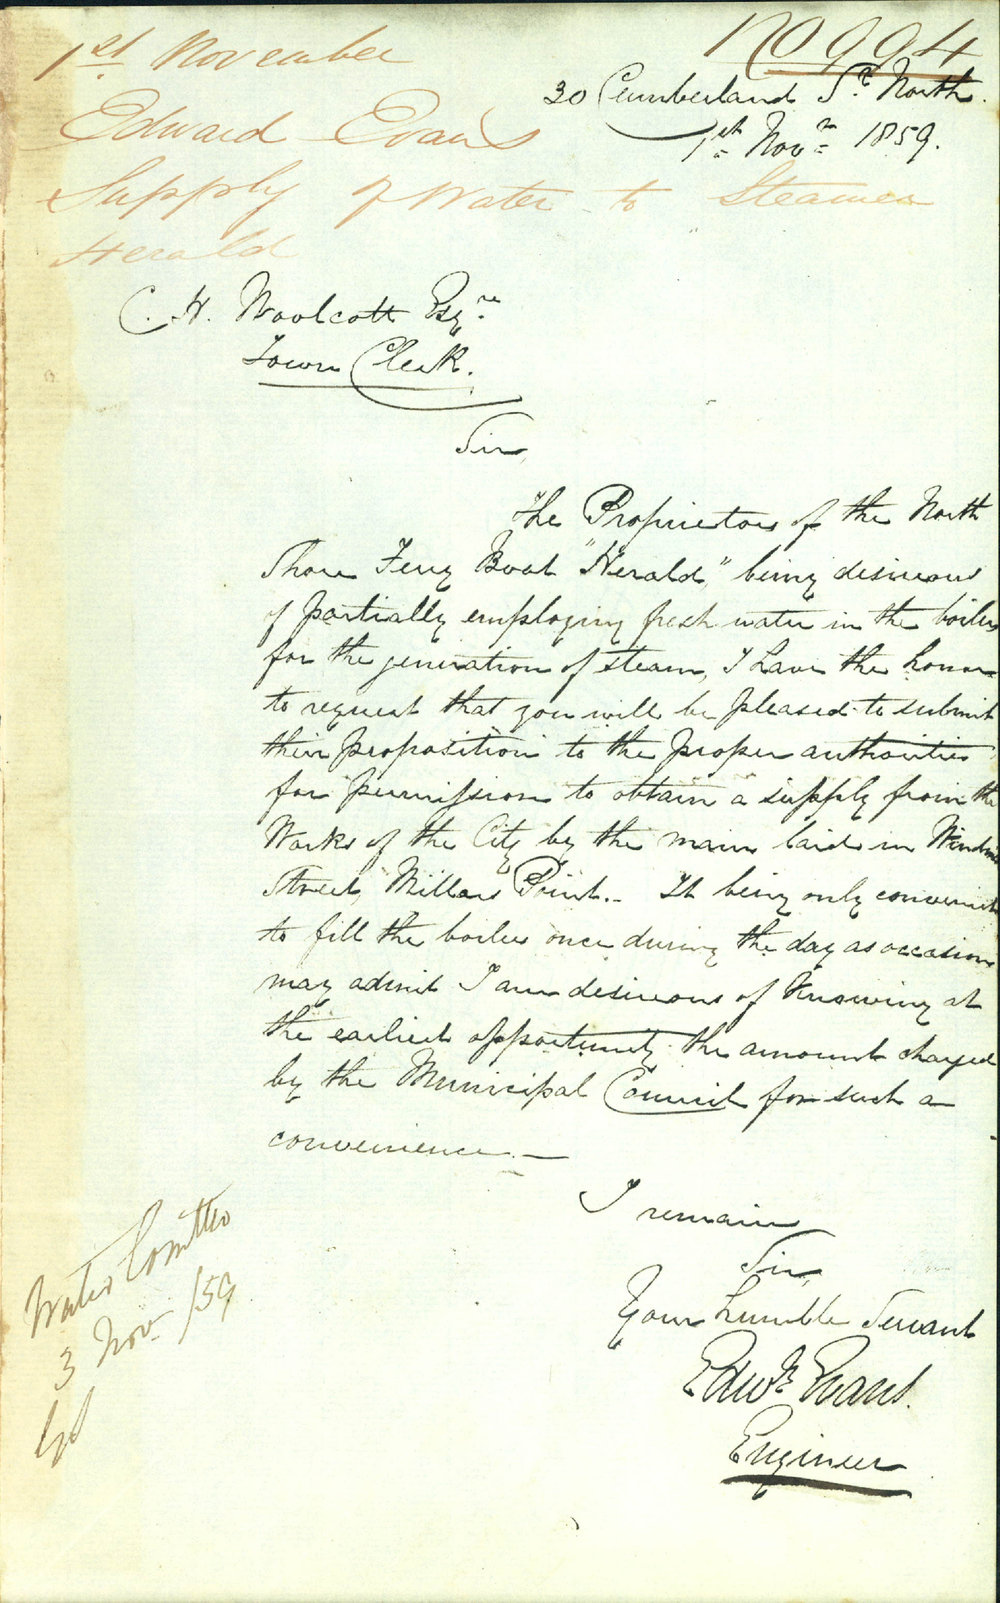 1st November
No 994
Edward Evans
Supply of Water to Steamer
Herald
30 Cumberland St. North.
1st Novr 1859.
C. H. Woolcott Esqre
Town Clerk.
Sir,
The Proprietors of the North
Shore Ferry Boat "Herald," being desireous
of partially employing fresh water in the boilers
for the generation of steam, I have the honor
to request that you will be pleased to submit
their proposition to the proper authorities
for permission to obtain a supply from the
Works of the City by the main laid in Windmill
Street, Millers Point.- It being only convenient
to fill the boiler once during the day as occasion
may admit I am desireous of Knowing at
the earliest opportunity the amount charged
by the Municipal Council for such a
convenience.—
I remain
Sir,
Your humble Servant
Edwd Evans.
Engineer
Water Comittee
3 Nov /59